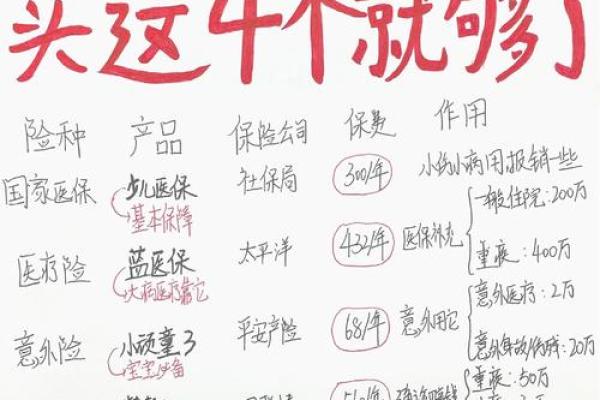 买这4个就够了
险种 产品 保险公司 保费 作用
国家医保 少儿医保 社保局 300/年 小伤小病用报销一些
基本保障
医疗险 蓝医保 太平洋 432/年 医保补充 一般住院:200万
大病医疗靠它 重疾:400万
意外险 小顽童3 平安产险 68/年 意外用它 意外医疗:2万
宝宝必备 意外身故/伤残:20万
重疾:50万